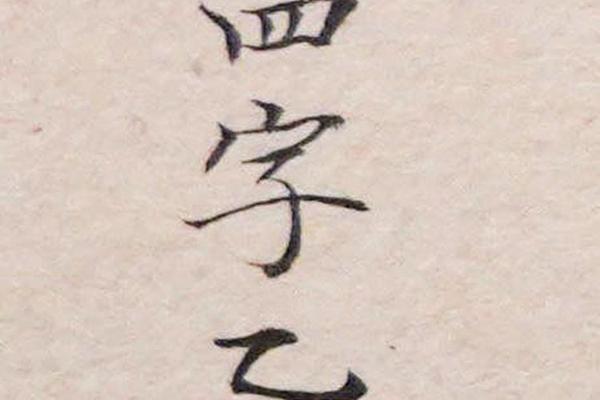 四字乙